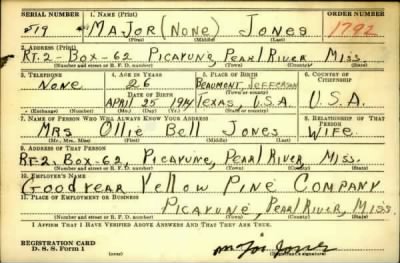 SERIAL NUMBER 1. NAME (Print) ORDER NUMBER
519 MAJOR (NONE) JONES 1792
(First) (Middle) (Last)
2. ADDRESS (Print)
RT. 2 - BOX-62 PICAYUNE PEARL RIVER MISS.
(Number and street or R. F. D. number) (Town) (County) (State)
3. TELEPHONE 4. AGE IN YEARS 5. PLACE OF BIRTH 6. COUNTRY OF CITIZENSHIP
NONE 26 BEAUMONT, JEFFERSON
DATE OF BIRTH (Town) (County)
APRIL 25 1914 TEXAS, U.S.A. U.S.A.
(Exchange) (Number) (Mo.) (Day) (Yr.) (State or country)
7. NAME OF PERSON WHO WILL ALWAYS KNOW YOUR ADDRESS 8. RELATIONSHIP OF THAT PERSON
MRS OLLIE BELL JONES WIFE
(Mr., Mrs., Miss) (First) (Middle) (Last)
9. ADDRESS OF THAT PERSON
RT-2, BOX-62, PICAYUNE, PEARL RIVER, MISS.
(Number and street or R. F. D. number) (Town) (County) (State)
10. EMPLOYER'S NAME
GOODYEAR YELLOW PINE COMPANY
11. PLACE OF EMPLOYMENT OR BUSINESS
PICAYUNE, PEARL RIVER, MISS.
(Number and street or R. F. D. number) (Town) (County) (State)
I AFFIRM THAT I HAVE VERIFIED ABOVE ANSWERS AND THAT THEY ARE TRUE.
REGISTRATION CARD
D. S. S. Form 1 Major Jones
(Registrant's signature)